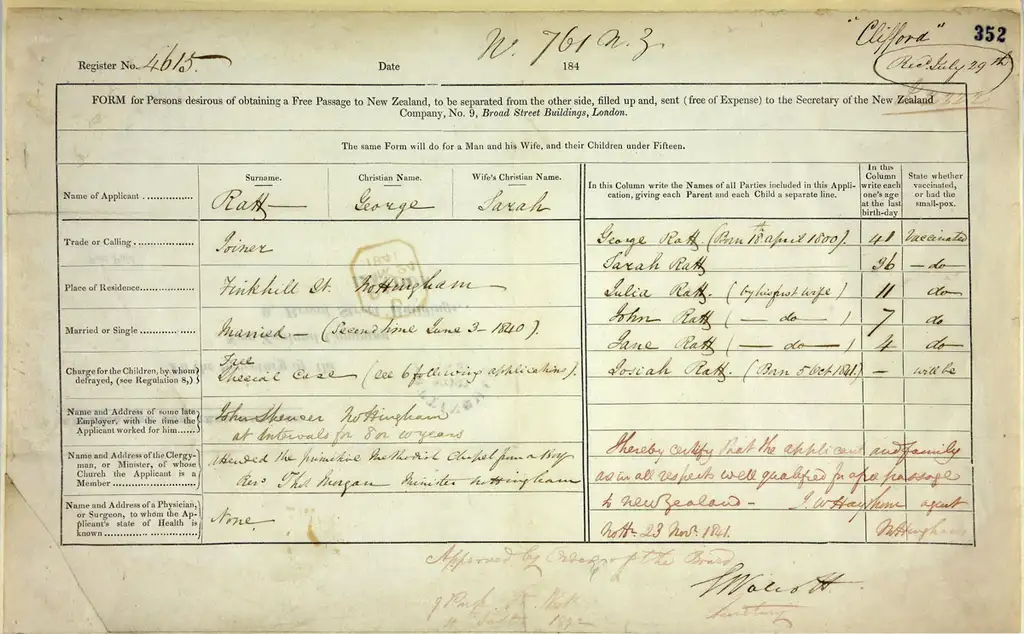 Nº. 761 N. Z.
"Clifford"
352
Register No. 4615.
Date
184
Recd. July 29th
FORM for Persons desirous of obtaining a Free Passage to New Zealand, to be separated from the other side, filled up and, sent (free of Expense) to the Secretary of the New Zealand
Company, No. 9, Broad Street Buildings, London.
The same Form will do for a Man and his Wife, and their Children under Fifteen.
Name of Applicant
Surname.
Christian Name.
Wife's Christian Name.
Ratt
George
Sarah
Trade or Calling
Joiner
Place of Residence
Finkhill St. Nottingham
Married or Single
Married — (Second time June 3 - 1840).
Charge for the Children, by whom
defrayed, (see Regulation 8,)
Free
Special Case (see 6 following applications).
Name and Address of some late
Employer, with the time the
Applicant worked for him
John Spencer Nottingham
at Intervals for 8 or 10 years
Name and Address of the Clergy-
man, or Minister, of whose
Church the Applicant is a
Member
attended the primitive Methodist Chapel from a Boy
Revd. Thos Morgan Minister Nottingham
Name and Address of a Physician,
or Surgeon, to whom the Ap-
plicant's state of Health is
known
None
In this Column write the Names of all Parties included in this Appli-
cation, giving each Parent and each Child a separate line.
In this
Column
write each
one's age
at the last
birth-day
State whether
vaccinated,
or had the
small-pox.
George Ratt. (Born 18th april 1800). 41 Vaccinated
Sarah Ratt 36 — do —
Julia Ratt. (by his first wife) 11 do
John Ratt ( — do — ) 7 do
Jane Ratt ( — do — ) 4 do
Josiah Ratt. (Born 5 Oct 1841) — will be
I hereby certify that the applicant and family
as in all respect well qualified for a free passage
to new Zealand - agent
Nottm 23 Novr. 1841. Nottingham
Approved by Order of the Board
Secretary